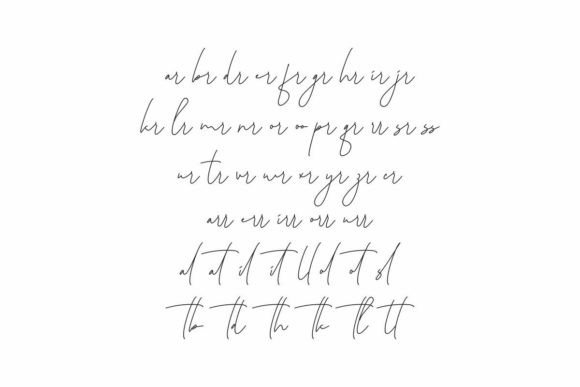 ar br dr er fr gr hr ir jr
kr lr mr nr or oo pr qr rr sr ss
ur tr vr wr xr yr zr er
arr err irr orr urr
al at il it ll ol ot sl
tb td th tk tl tt